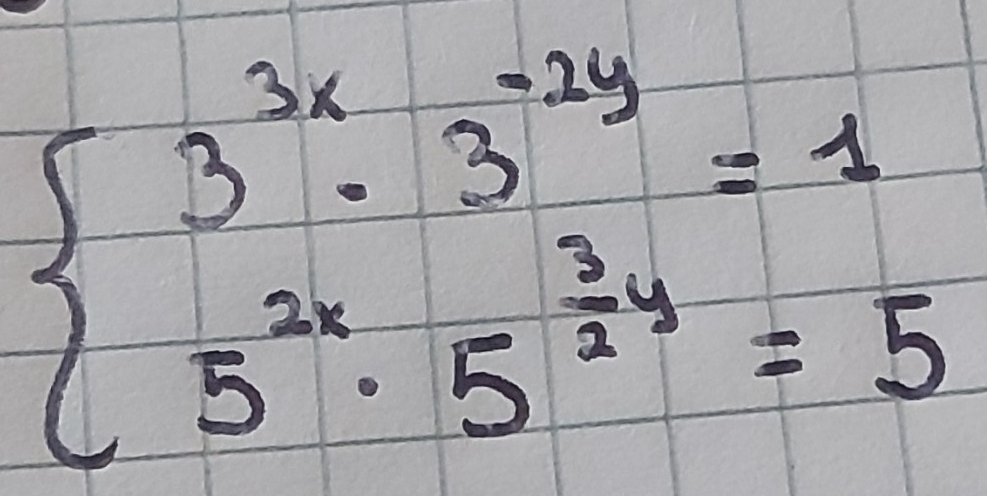 3^{3x} · 3^{-2y} = 1
5^{2x} · 5^{\frac{3}{2}y} = 5